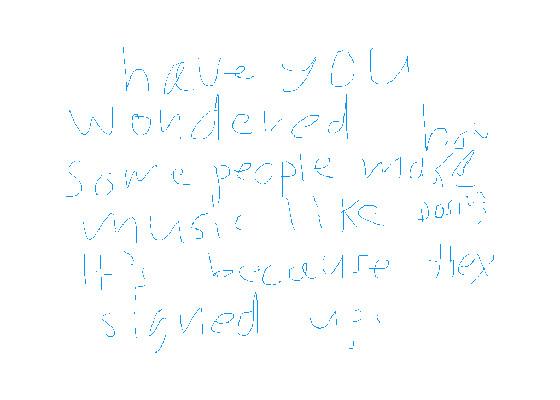 have you
wondered how
some people make
music like
It's because they
signed up